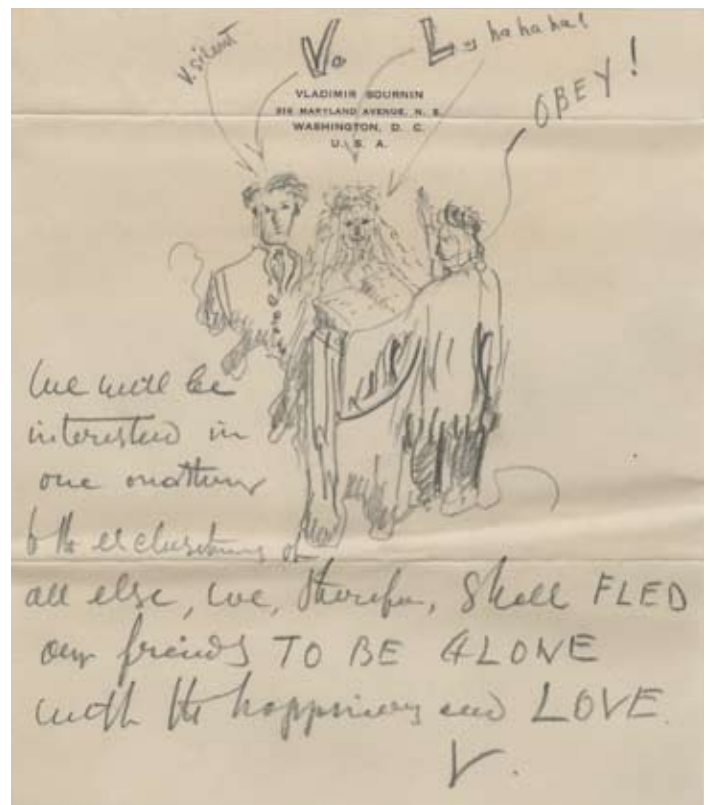 V. silent
Vo
L. ha ha ha!
OBEY!
VLADIMIR GOURNIN
216 MARYLAND AVENUE, N. E.
WASHINGTON, D. C.
U. S. A.
We will be
interested in
one another
to the exclusiveness of
all else, we, therefor, shall FLED
our friends TO BE ALONE
with the happiness and LOVE.
V.